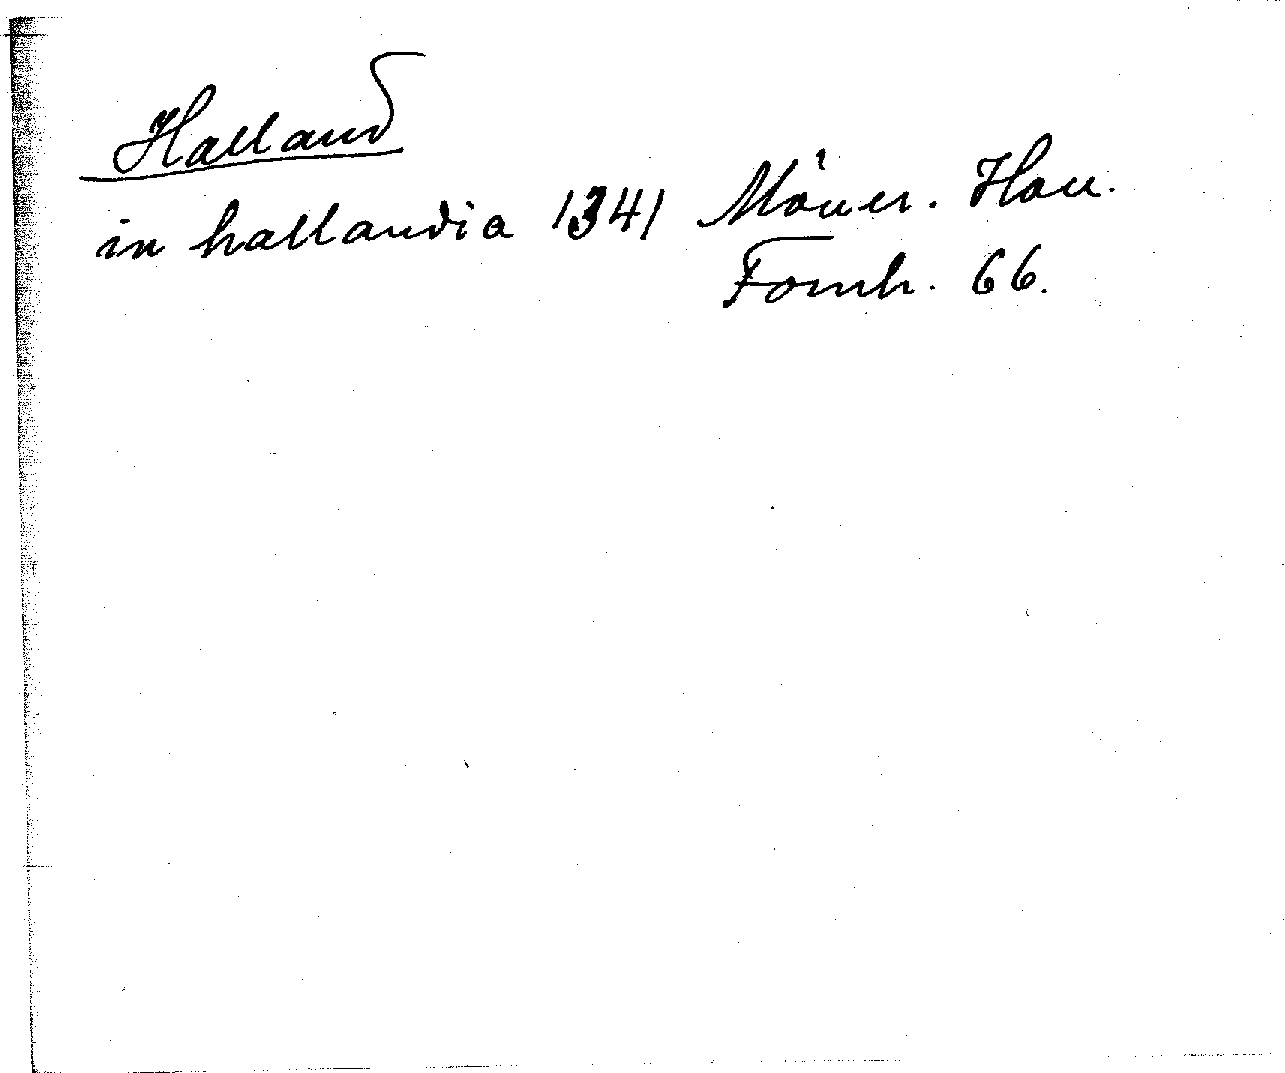 Halland
in hallandia 1341 Mòner. Han.
Fornh. 66.